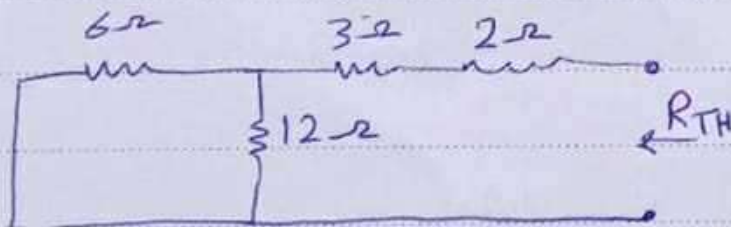 6Ω 3Ω 2Ω
12Ω R_TH